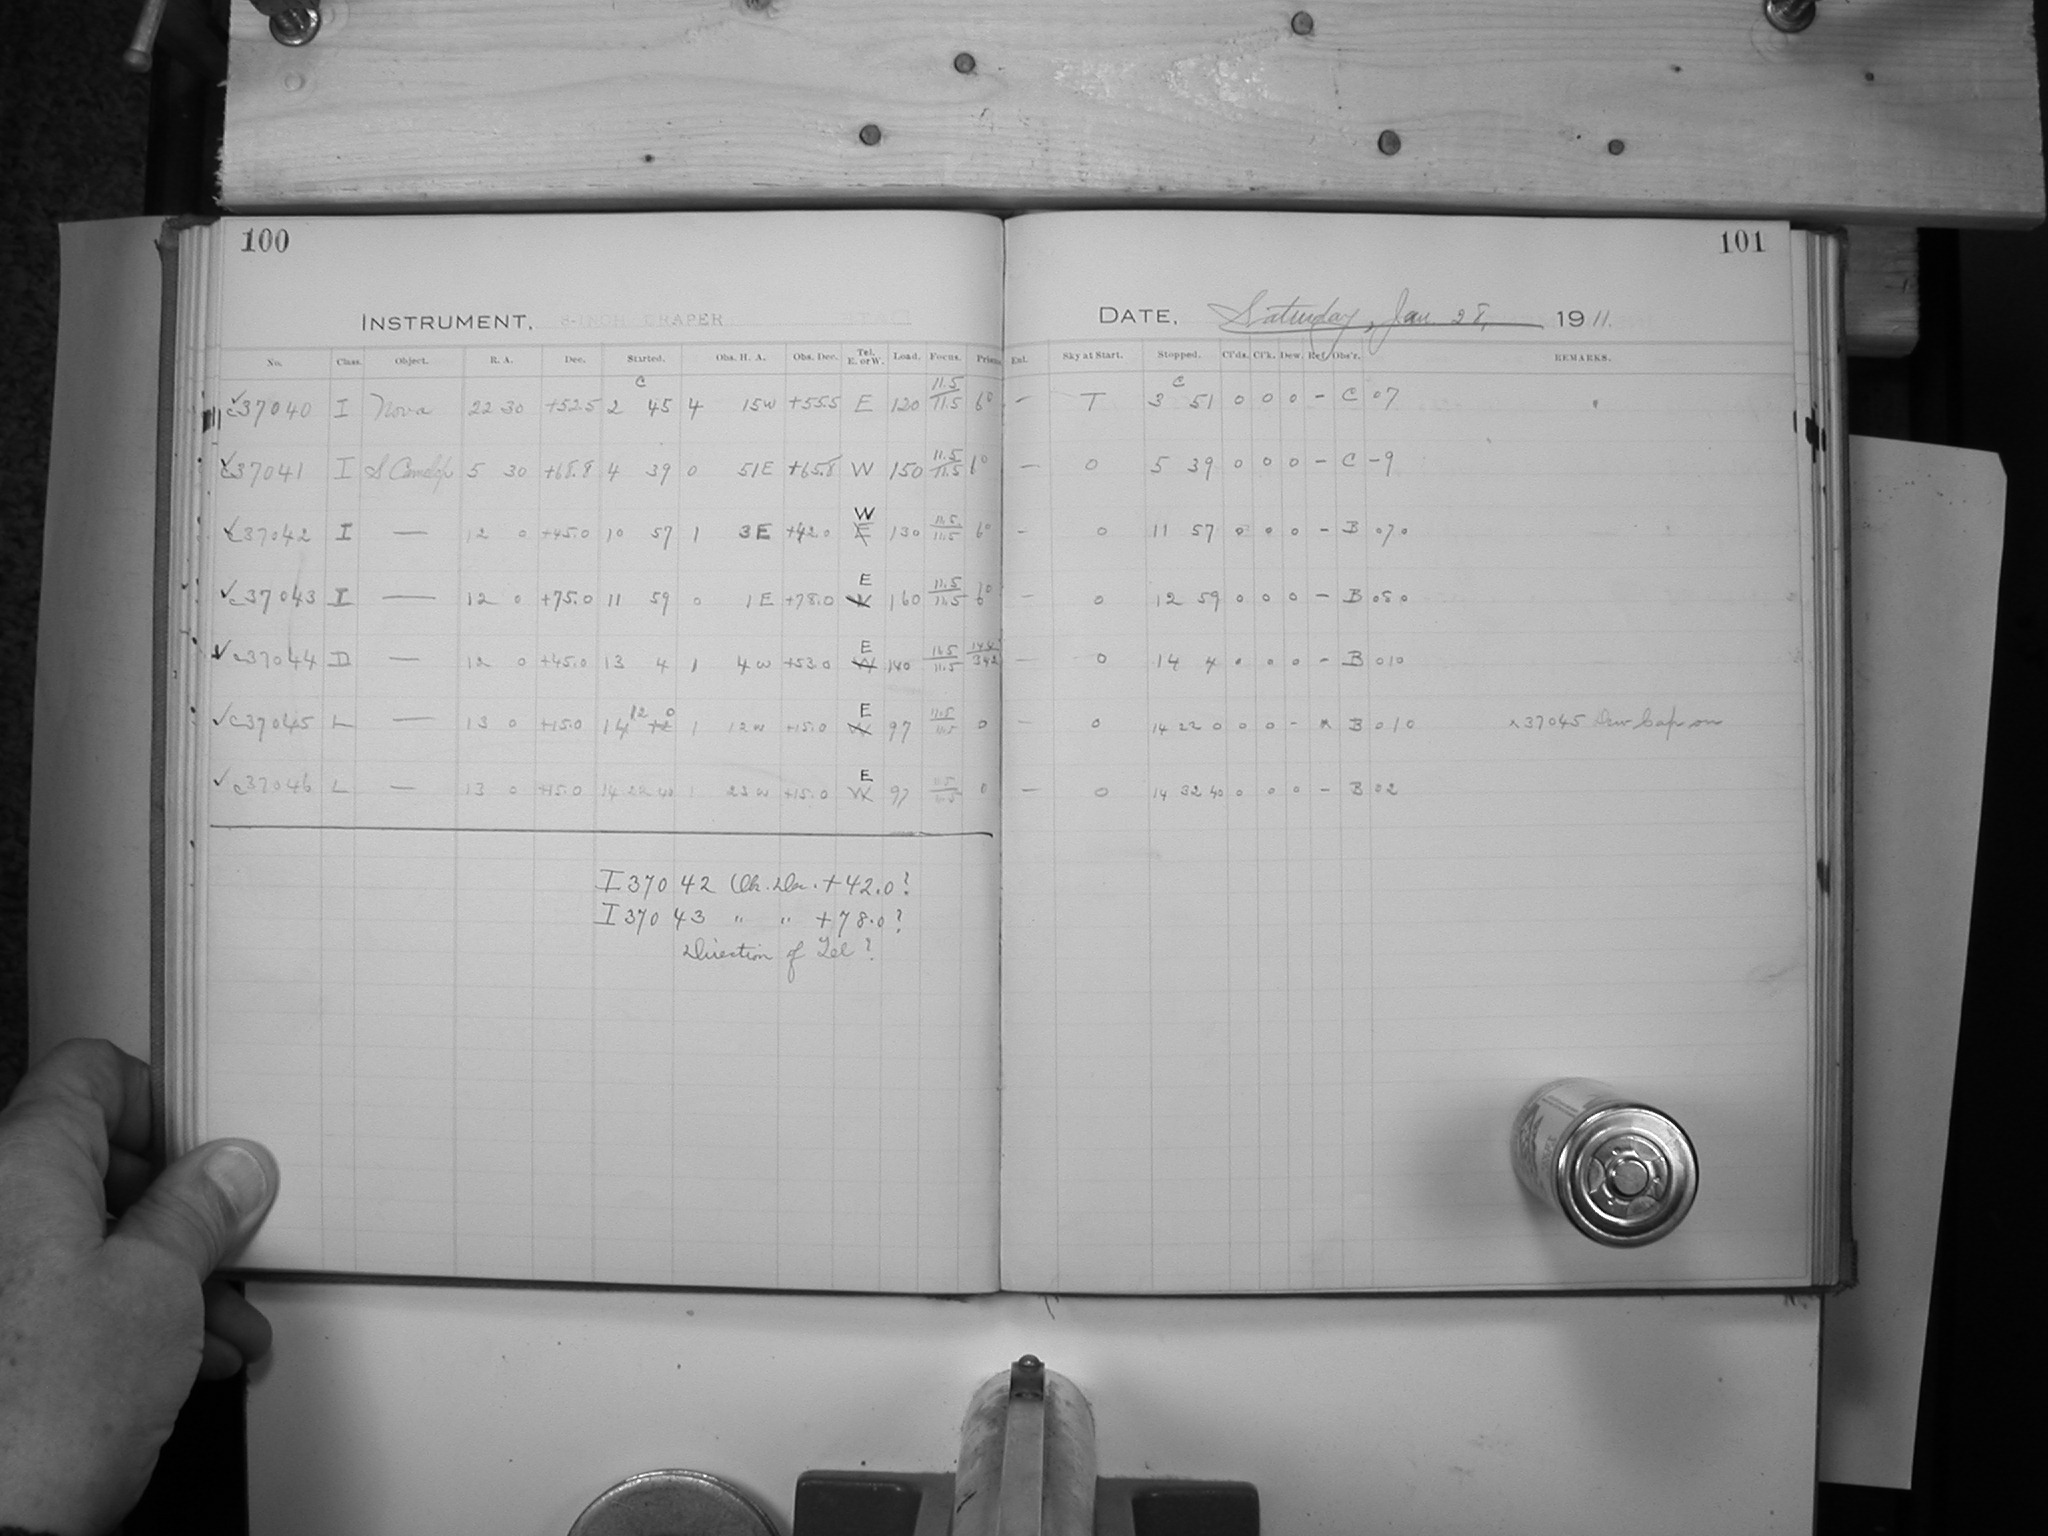 100
INSTRUMENT, 8-INCH DRAPER
No. Class. Object. R. A. Dec. Started. Obs. H. A. Obs. Dec. Tel. E. or W. Load. Focus. Prism
c37040 I Nova 22 30 +52.5 2 45 4 15W +55.5 E 120 11.5/11.5 6°
c37041 I S Camelop 5 30 +68.8 4 39 0 51E +65.8 W 150 11.5/11.5 6°
c37042 I — 12 0 +45.0 10 57 1 3E +42.0 W E 130 11.5/11.5 6°
c37043 I — 12 0 +75.0 11 59 0 1E +78.0 E W 160 11.5/11.5 6°
c37044 D — 12 0 +45.0 13 4 1 4W +53.0 E W 140
c37045 L — 13 0 +15.0 14 12 0 1 12W +15.0 E W 97 11.5/11.5 0
c37046 L — 13 0 +15.0 14 22 40 1 23W +15.0 E W 97 0
I 37042 Ob. Dec. +42.0?
I 37043 " " +78.0?
Direction of Tel?
101
DATE, Saturday, Jan. 28, 1911.
Ent. Sky at Start. Stopped. Cl'ds. Cl'k. Dew. Ref. Obs'r. REMARKS.
— T 3 51 0 0 0 – C 07
— 0 5 39 0 0 0 – C –9
— 0 11 57 0 0 0 – B 070
— 0 12 59 0 0 0 – B 080
— 0 14 4 0 0 0 – B 010
— 0 14 22 0 0 0 – x B 010 x37045 Dew Cap on
— 0 14 32 40 0 0 0 – B 02